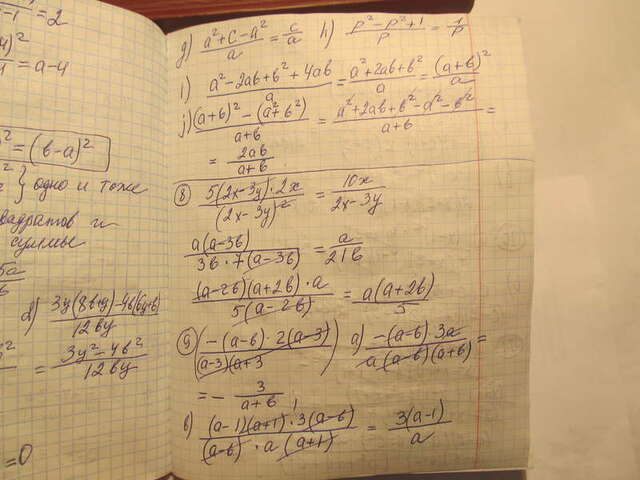 -1 = 2
)²
4 = a-4
² = (b-a)²
одно и тоже
вадратов и
суммы
5a
b
d) (3y(8b+y)-4b(6y+b))/(12by)
= (3y²-4b²)/(12by)
=0
g) (a²+c-a²)/a = c/a h) (p²-p²+1)/p = 1/p
i) (a²-2ab+b²+4ab)/a = (a²+2ab+b²)/a = (a+b)²/a
j) ((a+b)²-(a²+b²))/(a+b) = (a²+2ab+b²-a²-b²)/(a+b) =
= 2ab/(a+b)
8 (5(2x-3y)·2x)/(2x-3y)² = 10x/(2x-3y)
(a(a-3b))/(3b·7(a-3b)) = a/(21b)
((a-2b)(a+2b)·a)/(5(a-2b)) = (a(a+2b))/5
9 (-(a-b)·2(a-3))/((a-3)(a+3) a) (-(a-b)3a)/(a(a-b)(a+b)) =
= -3/(a+b);
b) ((a-1)(a+1)·3(a-b))/((a-b)·a(a+1)) = (3(a-1))/a